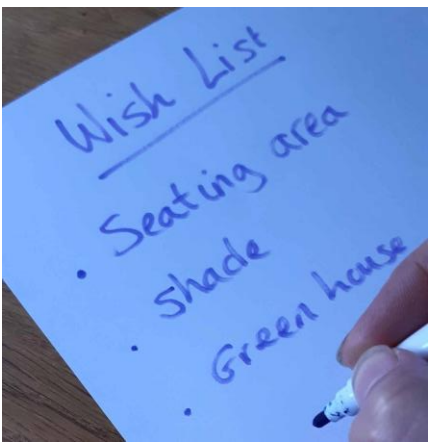 Wish List
• Seating area
• shade
• Green house